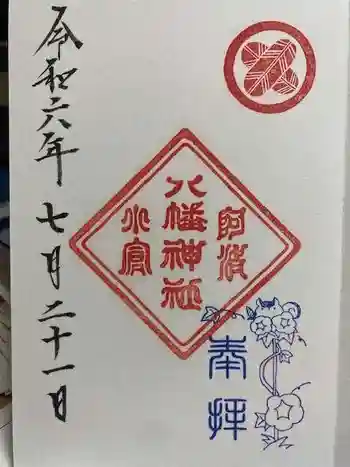 奉拝
阿波
八幡神社
令和六年 七月二十一日